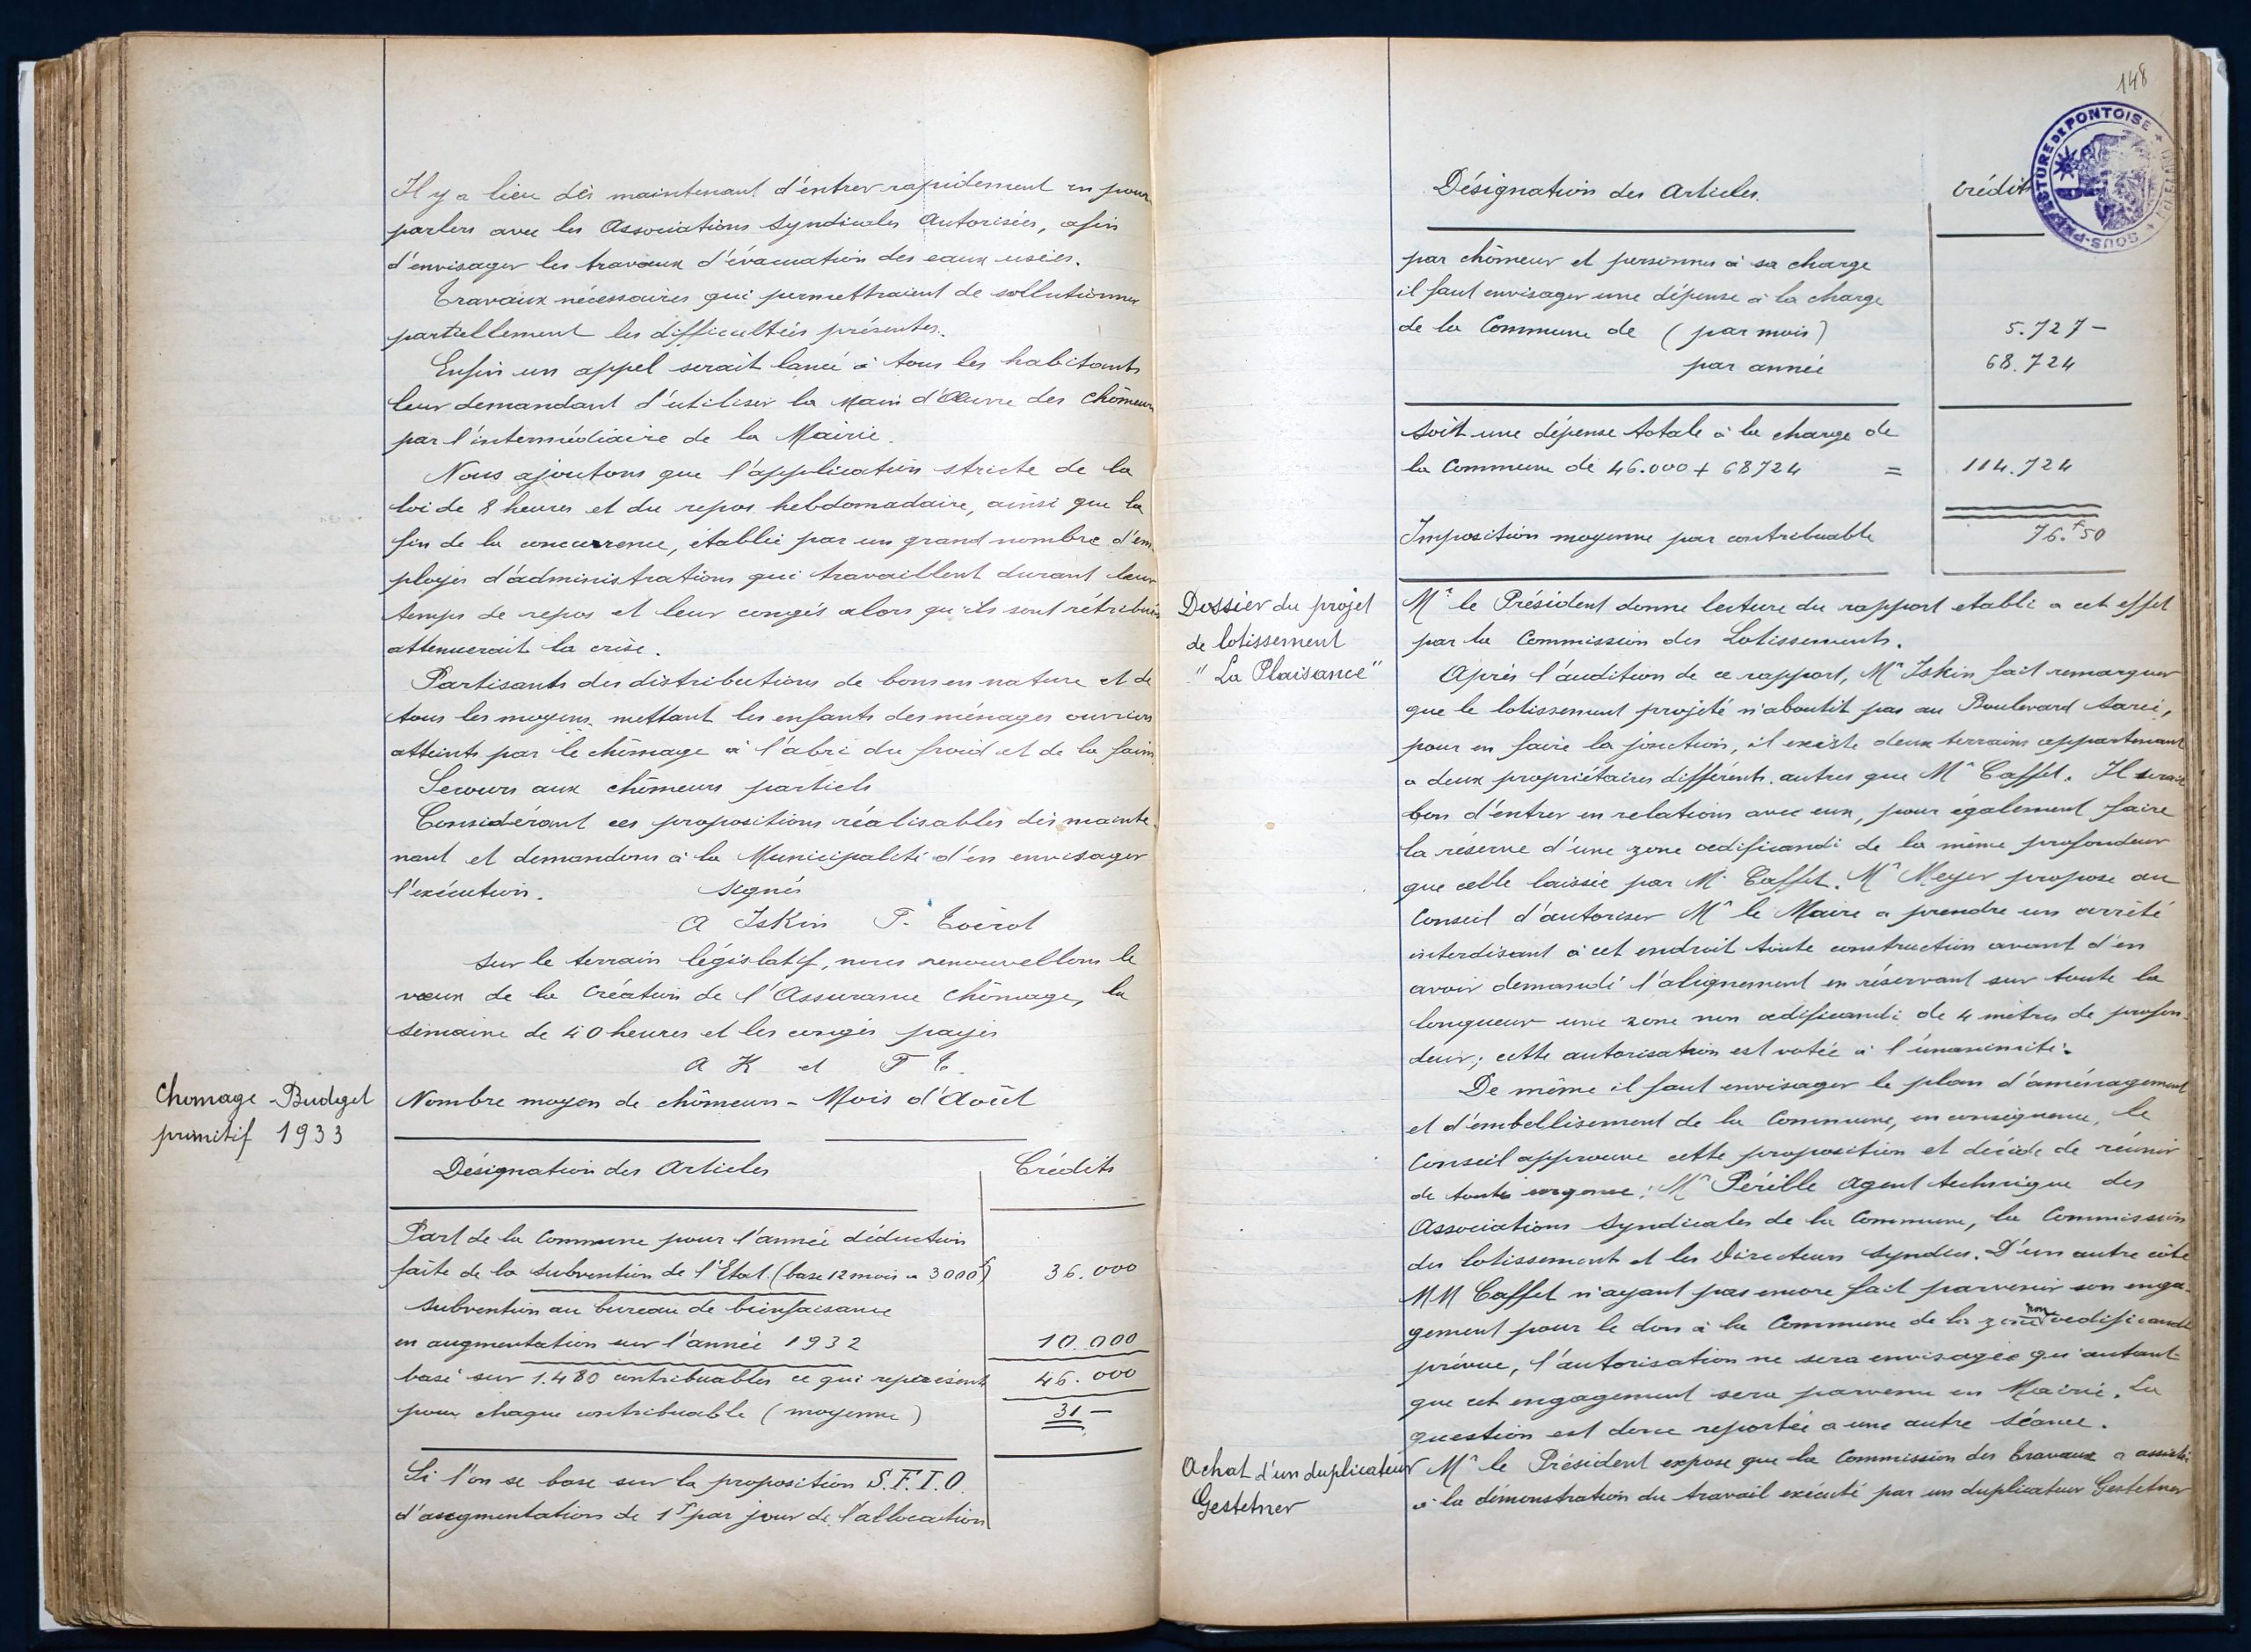 Il y a lieu dès maintenant d'entrer rapidement en pour
parlers avec les Associations Syndicales Autorisées, afin
d'envisager les travaux d'évacuation des eaux usées.
Travaux nécessaires qui permettraient de sollutionner
partiellement les difficultés présentes.
Enfin un appel serait lancé à tous les habitants
leur demandant d'utiliser la Main d'Œuvre des Chômeurs
par l'intermédiaire de la Mairie.
Nous ajoutons que l'application stricte de la
loi de 8 heures et du repos hebdomadaire, ainsi que la
fin de la concurrence, établie par un grand nombre d'em
ployés d'administrations qui travaillent durant leur
temps de repos et leur congés alors qu'ils sont rétribués
attenuerait la crise.
Partisants des distributions de bons en nature et de
tous les moyens mettant les enfants des ménages ouvriers
atteints par le chômage à l'abri du froid et de la faim
Secours aux chômeurs partiels
Considérant ces propositions réalisables dès mainte-
nant et demandons à la Municipalité d'en envisager
l'exécution. signés
A Iskin T. Toirot
Sur le terrain législatif, nous renouvellons le
vœux de la Création de l'Assurance Chômage, la
semaine de 40 heures et les congés payés
A K et T T.
Chomage - Budget
primitif 1933
Nombre moyen de chômeurs - Mois d'Août
Désignation des Articles Crédits
Part de la Commune pour l'année déduction
faite de la subvention de l'Etat. (base 12 mois a 3000f) 36.000
Subvention au bureau de bienfaisance
en augmentation sur l'année 1932 10.000
basé sur 1.480 contribuables ce qui représente 46.000
pour chaque contribuable (moyenne) 31 -
Si l'on se base sur la proposition S.F.I.O.
d'augmentations de 1f par jour de l'allocation
148
SOUS-PRÉFECTURE DE PONTOISE
Désignation des Articles. Crédits
par chômeur et personnes à sa charge
il faut envisager une dépense à la charge
de la Commune de (par mois) 5.727 -
par année 68.724
Soit une dépense totale à la charge de
la Commune de 46.000 + 68724 = 114.724
Imposition moyenne par contribuable 76.f50
Dossier du projet
de lotissement
"La Plaisance"
Mr le Président donne lecture du rapport etabli a cet effet
par la Commission des Lotissements.
Après l'audition de ce rapport, Mr Iskin fait remarquer
que le lotissement projeté n'aboutit pas au Boulevard
pour en faire la jonction, il existe deux terrains appartenant
a deux propriétaires différents autres que Mr Caffet. Il serait
bon d'entrer en relations avec eux, pour également faire
la réserve d'une zone oedificandi de la même profondeur
que celle laissée par Mr Caffet. Mr Meyer propose au
Conseil d'autoriser Mr le Maire a prendre un arrêté
interdisant à cet endroit toute construction avant d'en
avoir demandé l'alignement en réservant sur toute la
longueur une zone non œdificandi de 4 mètres de profon-
deur; cette autorisation est votée à l'unanimité.
De même il faut envisager le plan d'aménagement
et d'embellisement de la Commune, en conséquence, le
Conseil approuve cette proposition et décide de réunir
de toute urgence: Mr Périlble Agent technique des
Associations Syndicales de la Commune, la Commission
des lotissement et les Directeurs Syndics. D'un autre côté
MM Caffet n'ayant pas encore fait parvenir son enga-
gement pour le don à la Commune de la zone non oedificandi
prévue, l'autorisation ne sera envisagée qu'autant
que cet engagement sera parvenu en Mairie. La
question est donc reportée a une autre séance.
Achat d'un duplicateur
Gestetner
Mr le Président expose que la Commission des travaux a assisté
à la démonstration du travail exécuté par un duplicateur Gestetner